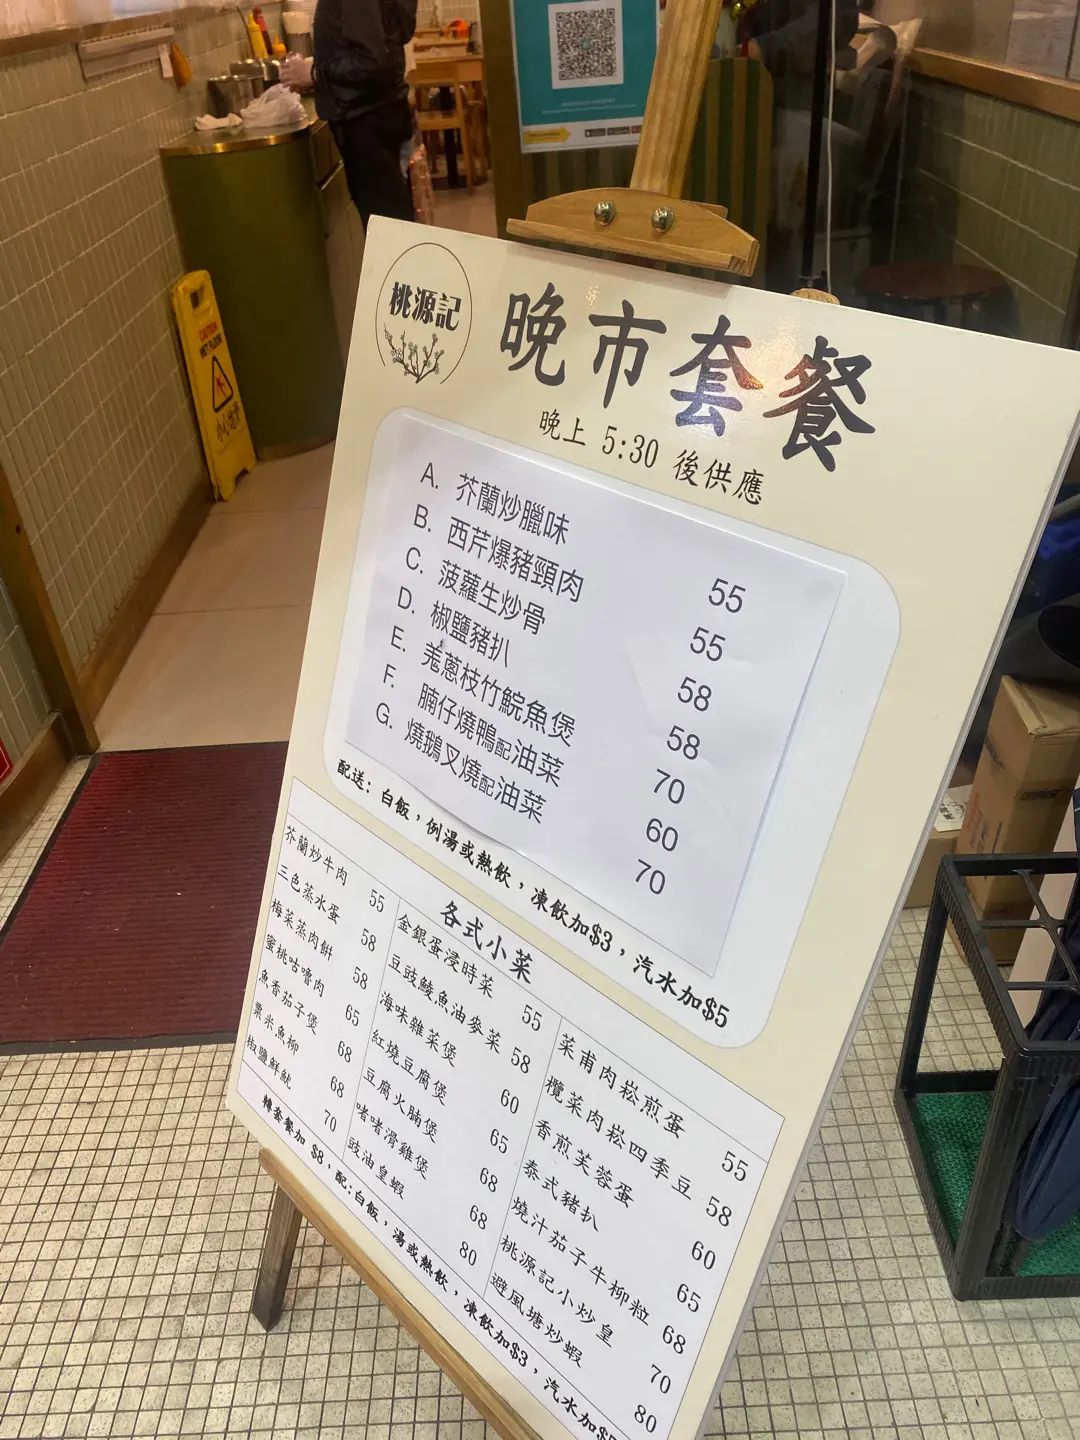 桃源記
晚市套餐
晚上 5:30 後供應
A. 芥蘭炒臘味 55
B. 西芹爆豬頸肉 55
C. 菠蘿生炒骨 58
D. 椒鹽豬扒 58
E. 羗蔥枝竹鯇魚煲 70
F. 腩仔燒鴨配油菜 60
G. 燒鵝叉燒配油菜 70
配送：白飯，例湯或熱飲，凍飲加$3，汽水加$5
各式小菜
芥蘭炒牛肉 55
三色蒸水蛋 58
梅菜蒸肉餅 58
蜜桃咕嚕肉 65
魚香茄子煲 68
粟米魚柳 68
椒鹽鮮魷 70
金銀蛋浸時菜 55
豆豉鯪魚油麥菜 58
海味雜菜煲 60
紅燒豆腐煲 65
豆腐火腩煲 68
啫啫滑雞煲 68
豉油皇蝦 80
菜甫肉崧煎蛋 55
欖菜肉崧四季豆 58
香煎芙蓉蛋 60
泰式豬扒 65
燒汁茄子牛柳粒 68
桃源記小炒皇 70
避風塘炒蝦 80
轉套餐加 $8，配:白飯，湯或熱飲，凍飲加$3，汽水加$
CAUTION
WET FLOOR
小心地滑